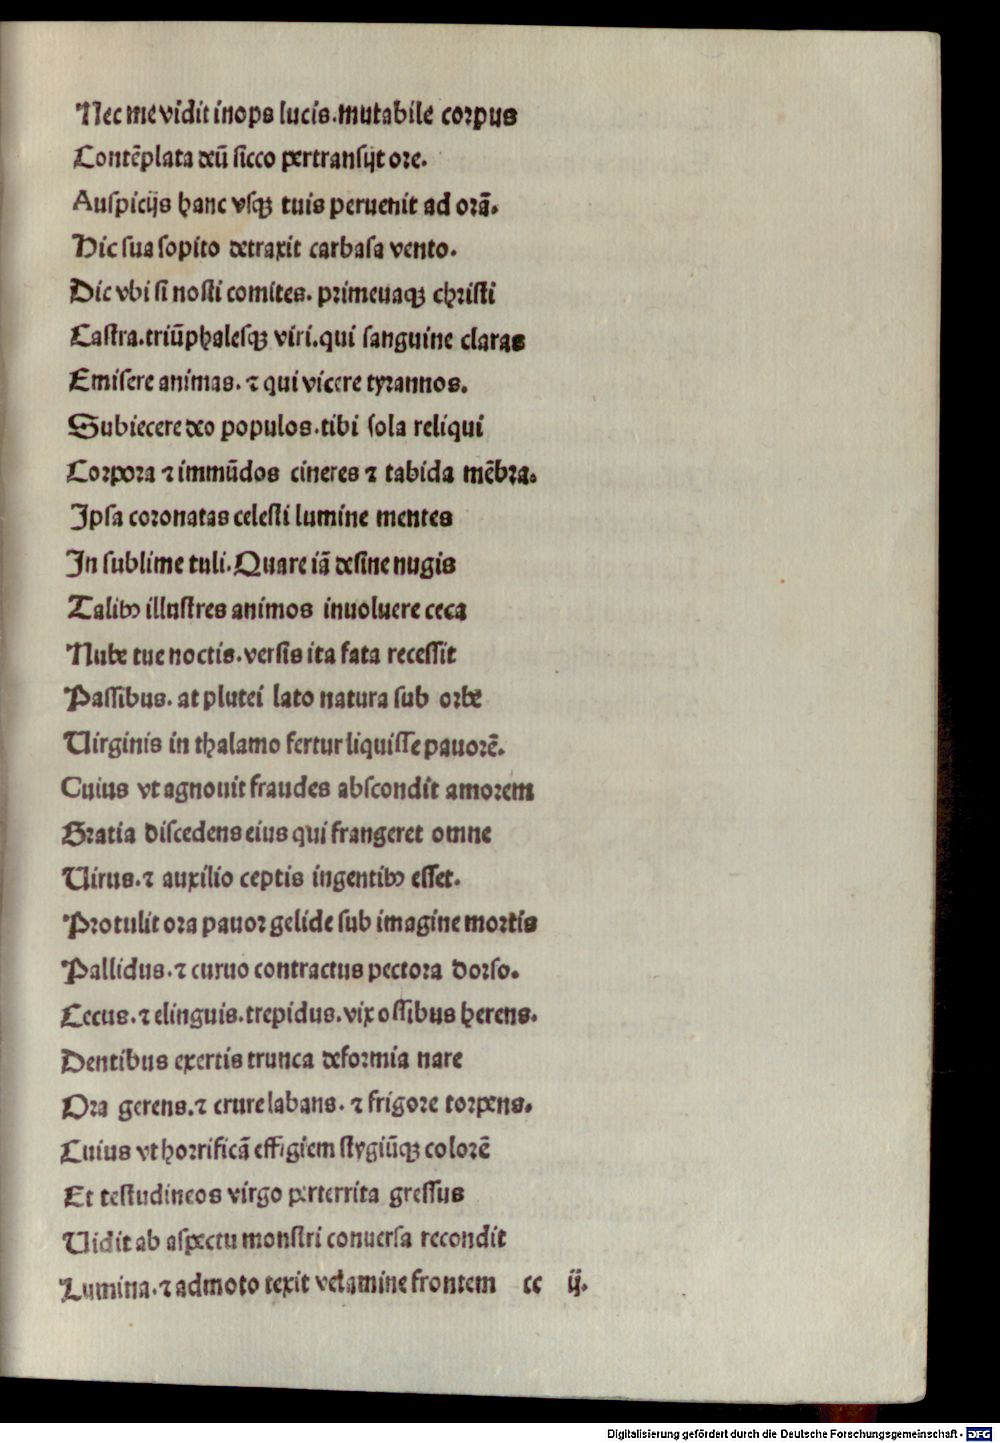 Nec me vidit inops lucis.mutabile corpus
Contēplata deū sicco pertransijt ore.
Auspicijs hanc vsqꝫ tuis peruenit ad orā.
Hic sua sopito detraxit carbasa vento.
Dic vbi si nosti comites. primeuaqꝫ christi
Castra.triūphalesqꝫ viri.qui sanguine claras
Emisere animas. ⁊ qui vicere tyrannos.
Subiecere deo populos.tibi sola reliqui
Corpora ⁊ immūdos cineres ⁊ tabida mēbra.
Ipsa coronatas celesti lumine mentes
In sublime tuli.Quare iā desine nugis
Talibꝰ illustres animos inuoluere ceca
Nube tue noctis.versis ita fata recessit
Passibus. at plutei lato natura sub orbe
Uirginis in thalamo fertur liquisse pauorē.
Cuius vt agnouit fraudes abscondit amorem
Gratia discedens eius qui frangeret omne
Uirus.⁊ auxilio ceptis ingentibꝰ esset.
Protulit ora pauor gelide sub imagine mortis
Pallidus.⁊ curuo contractus pectora dorso.
Cecus.⁊ elinguis.trepidus.vix ossibus herens.
Dentibus exertis trunca deformia nare
Ora gerens.⁊ crure labans. ⁊ frigore torpens.
Cuius vt horrificā effigiem stygiūqꝫ colorē
Et testudineos virgo perterrita gressus
Uidit ab aspectu monstri conuersa recondit
Lumina.⁊ admoto texit velamine frontem cc ij.
Digitalisierung gefördert durch die Deutsche Forschungsgemeinschaft - DFG